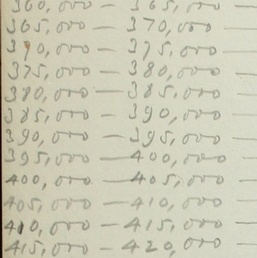 360,000 — 365,000 —
365,000 — 370,000 —
370,000 — 375,000 —
375,000 — 380,000 —
380,000 — 385,000 —
385,000 — 390,000 —
390,000 — 395,000 —
395,000 — 400,000 —
400,000 — 405,000 —
405,000 — 410,000 —
410,000 — 415,000 —
415,000 — 420,000 —